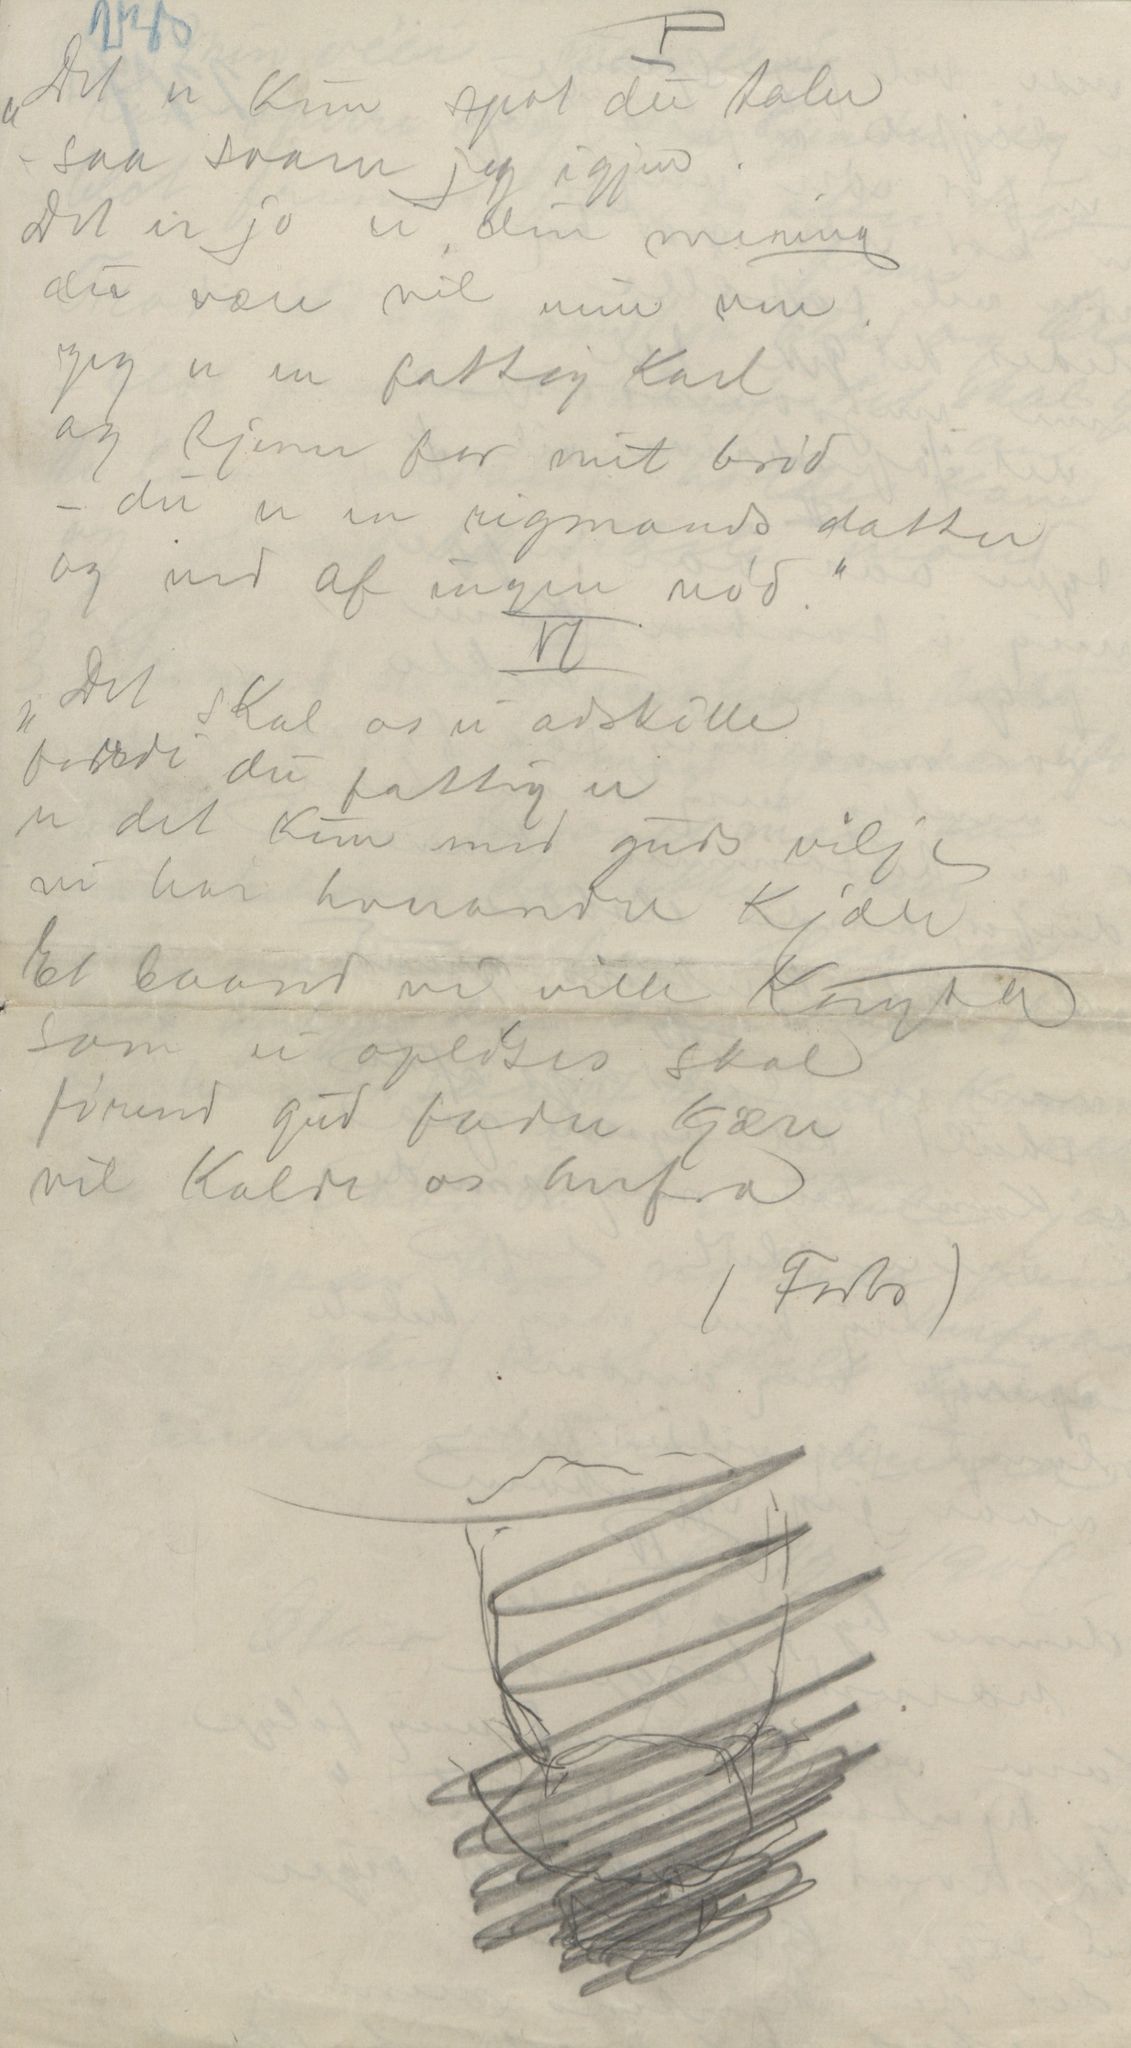 V
„Det er kun spot du taler
- saa svarer jeg igjen.
Det er jo ei din mening
du være vil min ven.
Jeg er en fattig Karl
og tjener for mit brød
- du er en rigmands datter
og ved af ingen nød."
VI
„Det skal os ei adskille
fordi du fattig er
er det kun med guds vilje
vi har hverandre kjær
Et baand vi ville knytte
som ei opløses skal
førend gud fader kjære
vil kalde os herfra